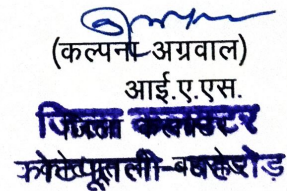 (कल्पना अग्रवाल)
आई.ए.एस.
जिला कलक्टर
कोटपूतली-बहरोड़